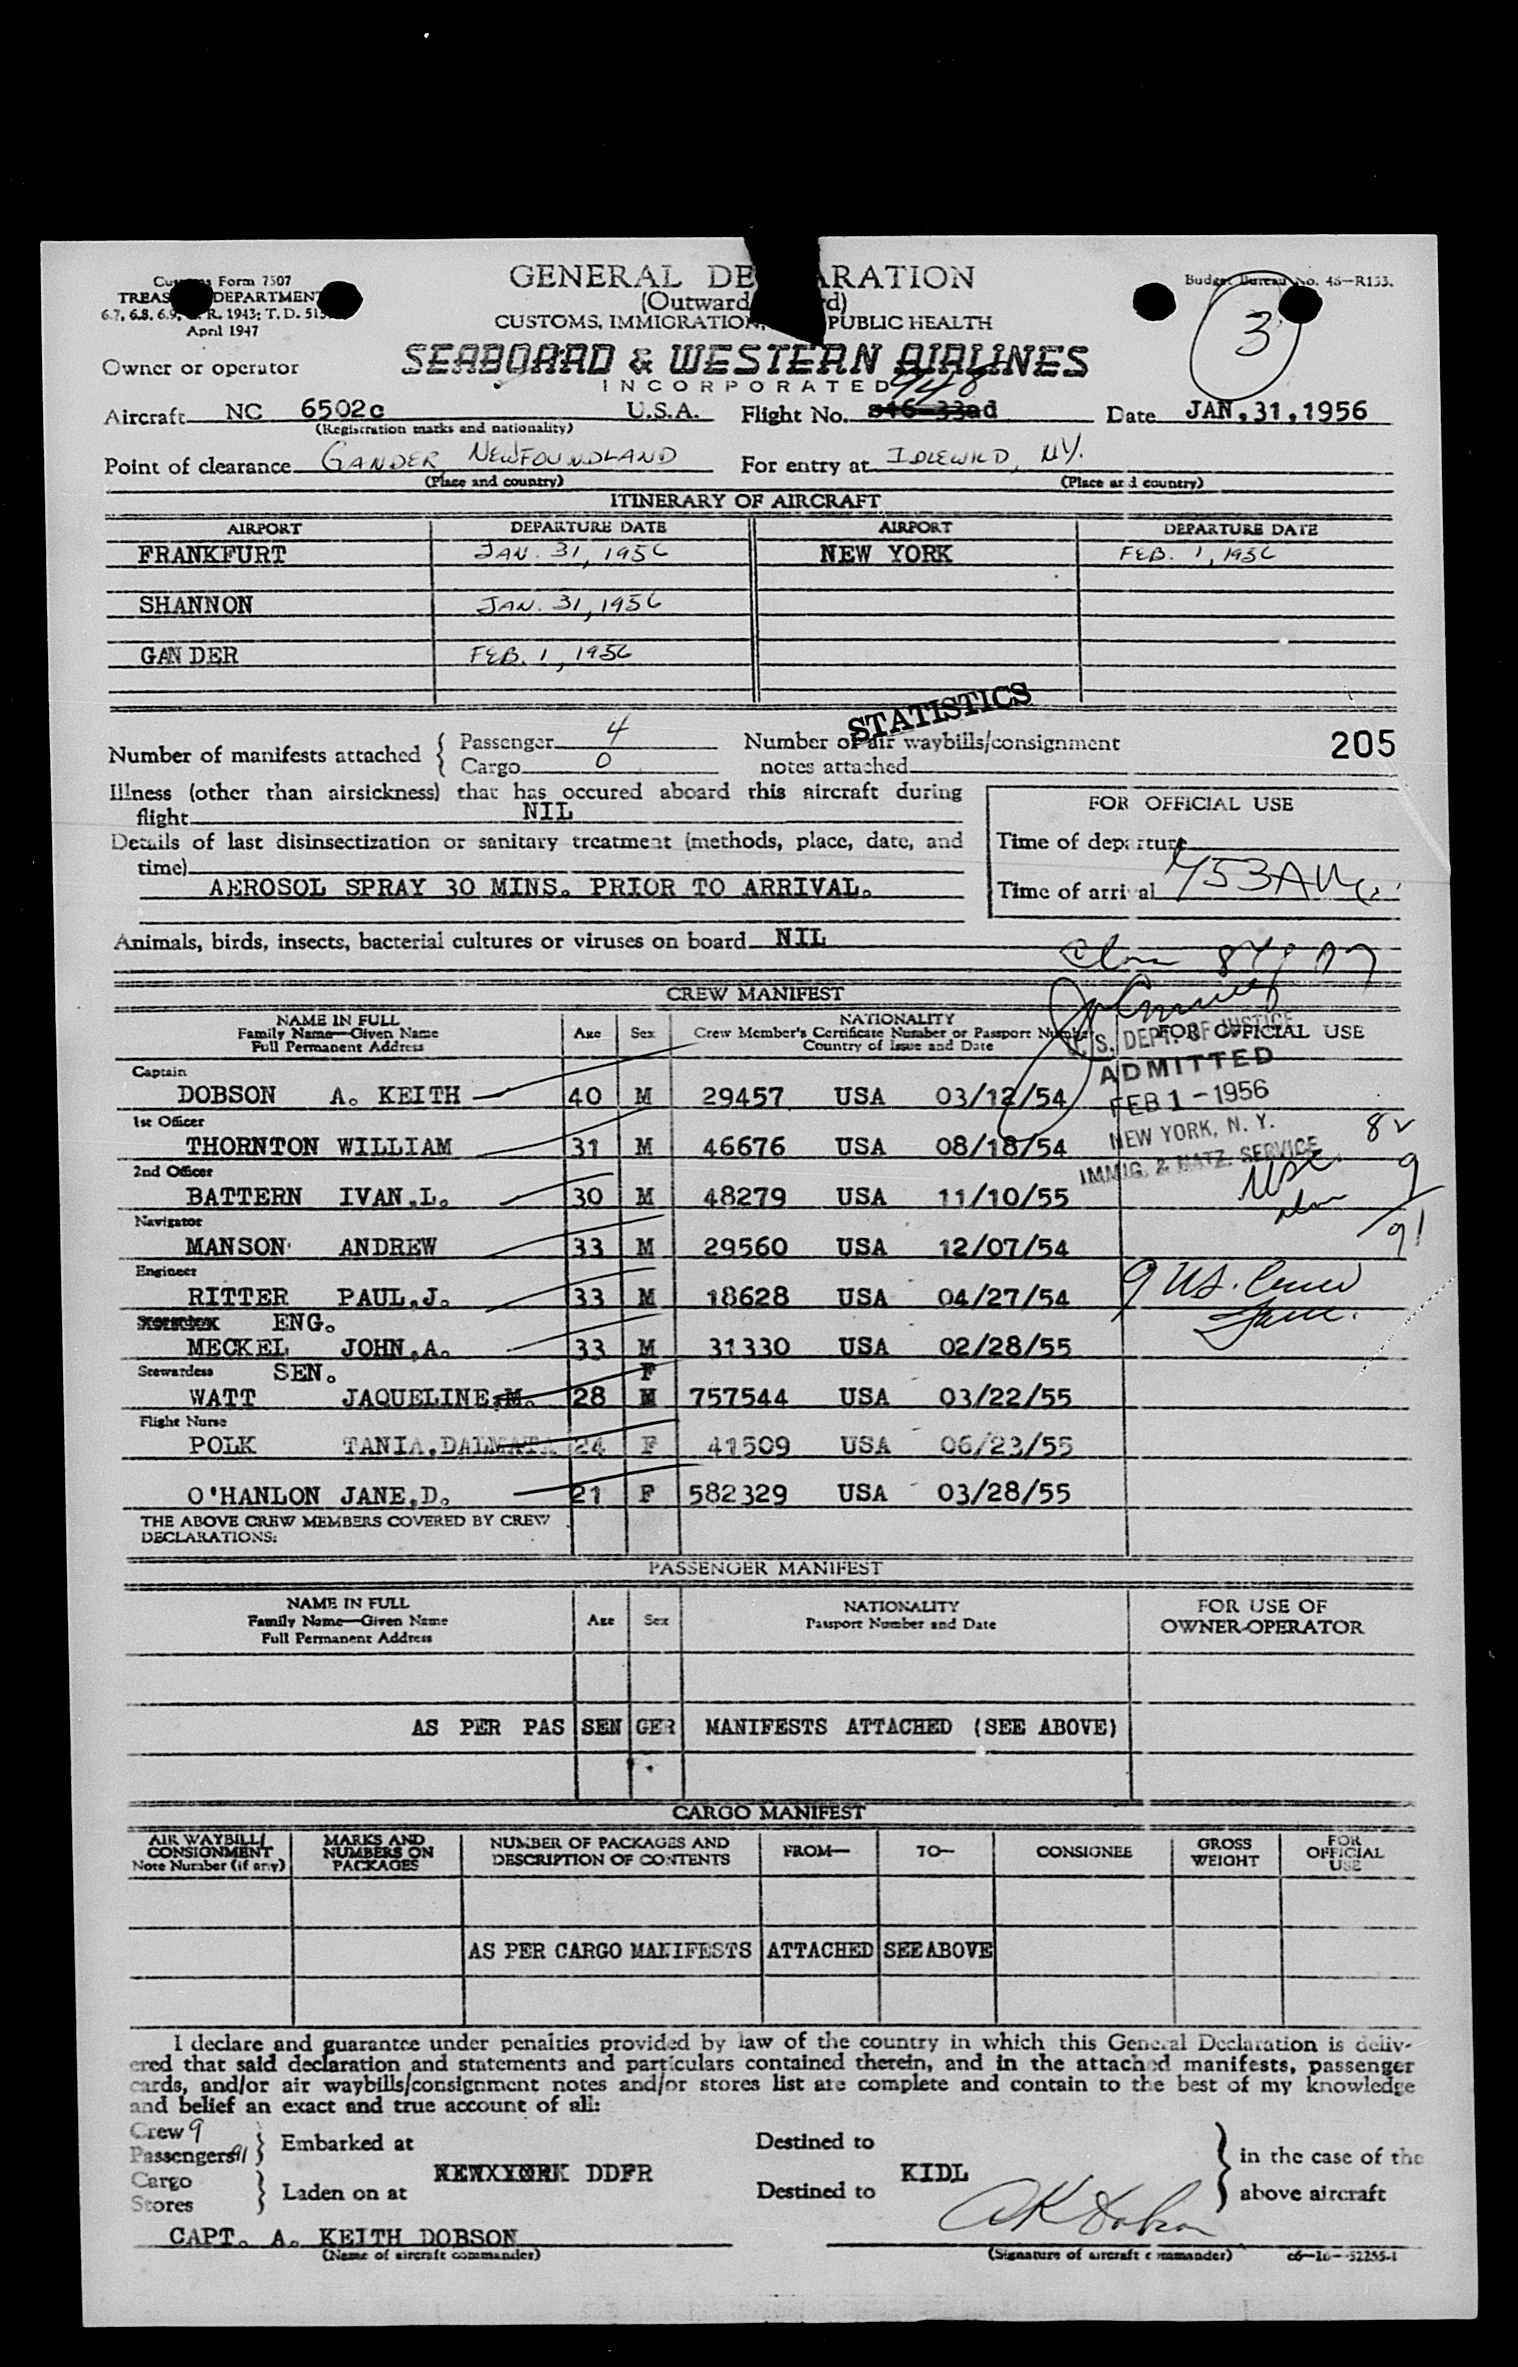 Customs Form 7507
TREAS DEPARTMENT
6.7, 6.8, 6.9, R. 1943; T. D. 515
April 1947
GENERAL DE RATION
(Outward d)
CUSTOMS, IMMIGRATION, PUBLIC HEALTH
Budget Bureau No. 48—R133.
3
Owner or operator
SEABOARD & WESTERN AIRLINES
INCORPORATED
948
Aircraft NC 6502c U.S.A. Flight No. Date JAN, 31, 1956
(Registration marks and nationality)
Point of clearance GANDER, NEWFOUNDLAND For entry at IDLEWILD, NY.
(Place and country) (Place and country)
ITINERARY OF AIRCRAFT
AIRPORT DEPARTURE DATE AIRPORT DEPARTURE DATE
FRANKFURT JAN. 31, 1956 NEW YORK FEB. 1, 1956
SHANNON JAN. 31, 1956
GAN DER FEB. 1, 1956
STATISTICS
Number of manifests attached { Passenger 4 Number of air waybills/consignment 205
Cargo 0 notes attached
Illness (other than airsickness) that has occured aboard this aircraft during
flight NIL
FOR OFFICIAL USE
Details of last disinsectization or sanitary treatment (methods, place, date, and
time)
Time of departure
AEROSOL SPRAY 30 MINS. PRIOR TO ARRIVAL.
Time of arrival 753AM
Animals, birds, insects, bacterial cultures or viruses on board NIL
CREW MANIFEST
NAME IN FULL
Family Name—Given Name
Full Permanent Address
Age Sex
NATIONALITY
Crew Member's Certificate Number or Passport Number
Country of Issue and Date
FOR OFFICIAL USE
U. S. DEPT. OF JUSTICE
ADMITTED
FEB 1 - 1956
NEW YORK, N. Y.
IMMIG. & NATZ. SERVICE
82
9
91
9 US.
Captain
DOBSON A. KEITH 40 M 29457 USA 03/12/54
1st Officer
THORNTON WILLIAM 31 M 46676 USA 08/18/54
2nd Officer
BATTERN IVAN.L. 30 M 48279 USA 11/10/55
Navigator
MANSON ANDREW 33 M 29560 USA 12/07/54
Engineer
RITTER PAUL.J. 33 M 18628 USA 04/27/54
ENG.
MECKEL JOHN.A. 33 M 31330 USA 02/28/55
Stewardess SEN.
WATT JAQUELINE.M. 28 F 757544 USA 03/22/55
Flight Nurse
POLK TANIA.DALMATA 24 F 41509 USA 06/23/55
O'HANLON JANE.D. 21 F 582329 USA 03/28/55
THE ABOVE CREW MEMBERS COVERED BY CREW
DECLARATIONS:
PASSENGER MANIFEST
NAME IN FULL
Family Name—Given Name
Full Permanent Address
Age Sex
NATIONALITY
Passport Number and Date
FOR USE OF
OWNER-OPERATOR
AS PER PAS SEN GER MANIFESTS ATTACHED (SEE ABOVE)
CARGO MANIFEST
AIR WAYBILL/
CONSIGNMENT
Note Number (if any)
MARKS AND
NUMBERS ON
PACKAGES
NUMBER OF PACKAGES AND
DESCRIPTION OF CONTENTS
FROM—
TO—
CONSIGNEE
GROSS
WEIGHT
FOR
OFFICIAL
USE
AS PER CARGO MANIFESTS ATTACHED SEE ABOVE
I declare and guarantee under penalties provided by law of the country in which this General Declaration is deliv-
ered that said declaration and statements and particulars contained therein, and in the attached manifests, passenger
cards, and/or air waybills/consignment notes and/or stores list are complete and contain to the best of my knowledge
and belief an exact and true account of all:
Crew 9
Passengers 91 } Embarked at Destined to
Cargo
Stores } Laden on at NEW YORK DDFR Destined to KIDL
} in the case of the
above aircraft
AK Dobson
CAPT. A. KEITH DOBSON
(Name of aircraft commander) (Signature of aircraft commander) c6—16—52255-1